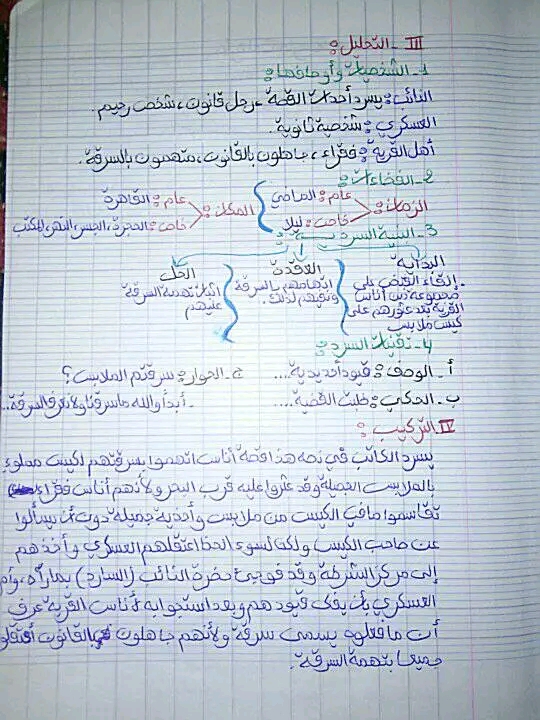 III - التحليل:
1- الشخصيات وأوصافها:
النائب: يسرد أحداث القصة، رجل قانون، شخص رحيم.
العسكري: شخصية ثانوية.
أهل القرية: فقراء، جاهلون بالقانون، متهمون بالسرقة.
2- الفضاءات:
الزمان: عام: الماضي
خاص: ليلا
المكان: عام: القاهرة
خاص: الحجرة، الحبس، النهر، المكتب
3- البنية السردية:
البداية
إلقاء القبض على
مجموعة من أناس
القرية بعد عثورهم على
كيس ملابس
العقدة
اتهامهم بالسرقة
ونفيهم لذلك.
الحل
إثبات تهمة السرقة
عليهم
4- تقنيات السرد:
أ- الوصف: قيود حديدية....
ب- الحكي: طلبت القضية.....
ج- الحوار: سرقتم الملابس؟
- أبدا والله ما سرقنا ولا نعرف السرقة..
IV التركيب:
يسرد الكاتب في نصه هذا قصة أناس اتهموا بسرقتهم لكيس مملوء
بالملابس الجميلة وقد عثروا عليه قرب البحر ولأنهم أناس فقراء
تقاسموا ما في الكيس من ملابس وأحذية جميلة دون أن يسألوا
عن صاحب الكيس ولكن لسوء الحظ اعتقلهم العسكري وأخذهم
إلى مركز الشرطة وقد فوجئ حضرة النائب (السارد) بما رآه، وأمر
العسكري بأن يفك قيودهم وبعد استجوابه لأناس القرية عرف
أن ما فعلوه يسمى سرقة ولأنهم جاهلون بالقانون اعتقلوا
جميعا بتهمة السرقة.